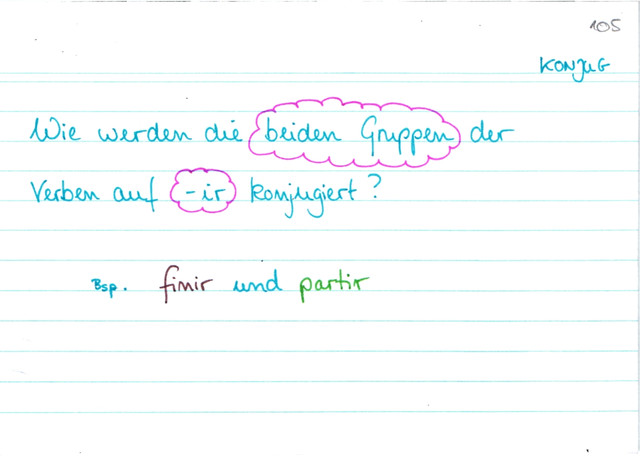 105
KONJUG
Wie werden die beiden Gruppen der
Verben auf -ir konjugiert?
Bsp. finir und partir